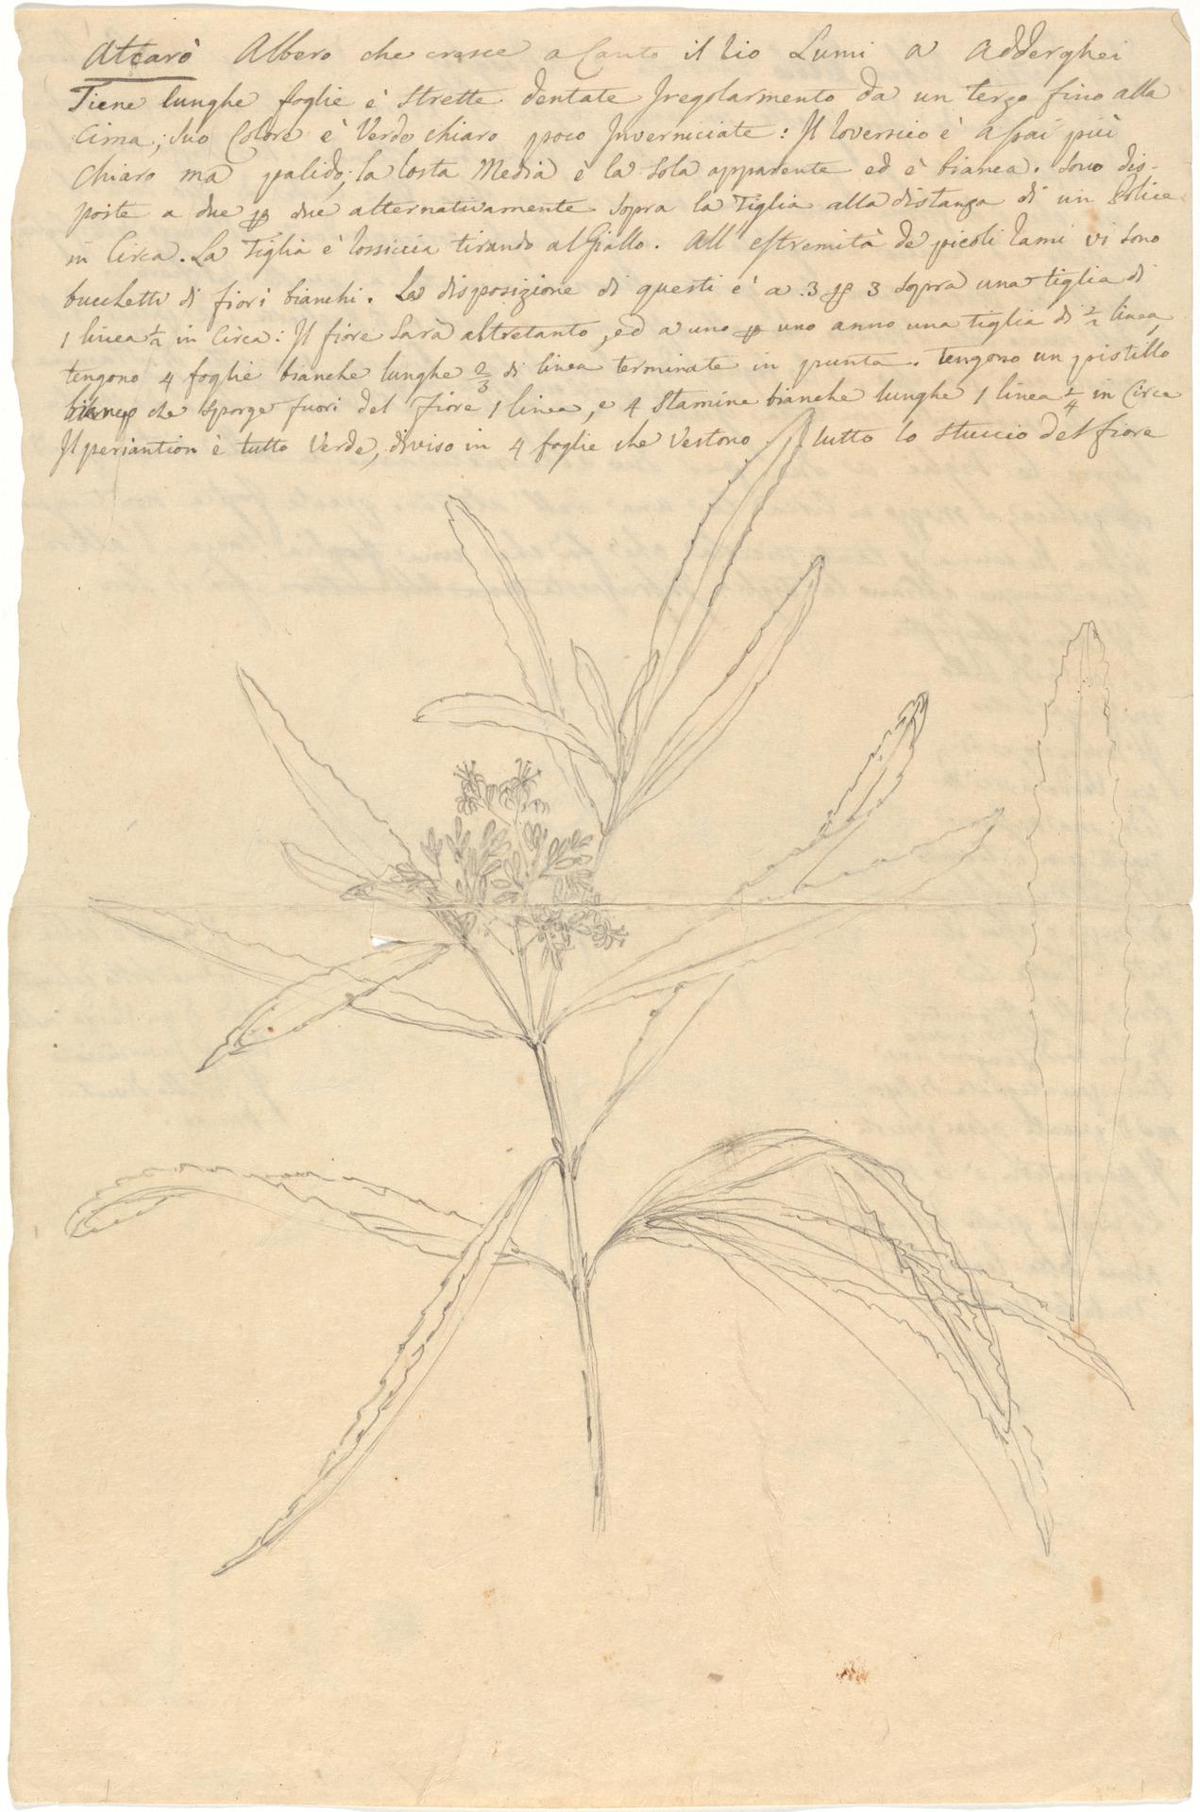 Atcarò Albero che cresce a Canto il rio Lumi a Adderghei
Tiene lunghe foglie è strette dentate Iregolarmento da un terzo fino alla
Cima; suo Colore è Verdo chiaro poco Inverniciate: Il roverscio è assai più
Chiaro ma palido; la Costa Media è la sola apparente ed è bianca. Sono dis-
poste a due p due alternativamente sopra la Tiglia alla distanza di un Police
in Circa. La Tiglia è rossicia tirando al Giallo. All' estremità de picoli rami vi sono
bucchetti di fiori bianchi. La disposizione di questi è a 3 p 3 sopra una tiglia di
1 linea ½ in Circa: Il fiore sarà altretanto, ed a uno p uno anno una tiglia di linea,
tengono 4 foglie bianche lunghe 2/3 di linea terminate in punta. tengono un pistillo
che sporge fuori del fiore 1 linea, e 4 Stamine bianche lunghe 1 linea in Circa
Il periantion è tutto Verde, diviso in 4 foglie che Vestono tutto lo stuccio del fiore